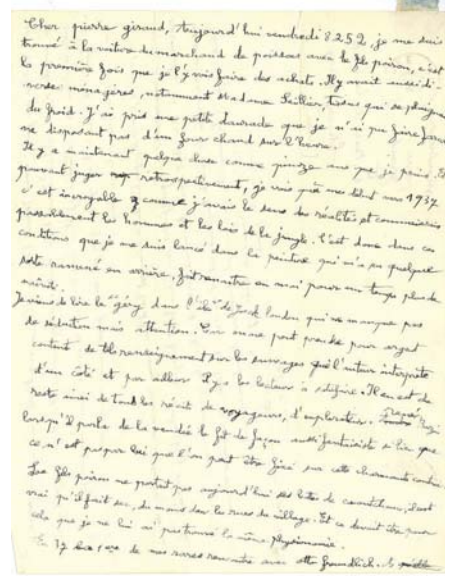 Cher pierre giraud, Aujourd'hui vendredi 8 2 52, je me suis
trouvé à la voiture du marchand de poissons avec le fils poiron, c'est
la première fois que je l'y vois faire des achats. Il y avait aussi di-
verses ménagères, notamment madame, qui se plaignait
du froid. J'ai pris une petite daurade que je n'ai pu faire
ne disposant pas d'un four chaud sur l'heure.
Il y a maintenant quelque chose comme quinze ans que je peins. Et
pouvant juger rétrospectivement, je vois qu'à mes début vers 1937
c'est incroyable comme j'avais le sens des réalités et connaissais
passablement les hommes et les lois de la jungle. C'est donc dans ces
conditions que je me suis lancé dans la peinture qui m'a en quelque
sorte ramené en arrière, fit renaître en moi pour un temps plus de
Je viens de lire le dans l' de Jack london qui ne manque pas
de séduction mais attention. Car on ne peut prendre pour argent
content de tels renseignement sur les sauvages que l'auteur interprète
d'un côté et par ailleurs il y a les lecteurs à édifier. Il en est de
reste ainsi de tout les récit de voyageurs, d'explorateurs.
lorsqu'il parle de la vendée le fit de façon aussi fantaisiste si bien que
ce n'est pas par lui que l'on peut être fixé sur cette charmante contrée
Le fils poiron ne portait pas aujourd'hui ses bottes de caoutchouc, il est
vrai qu'il fait sec, du moins dans les rues du village. Et ce devait être pour
cela que je ne lui ai pas trouvé la même physionomie.
de nos rares rencontre avec otto freundlich.